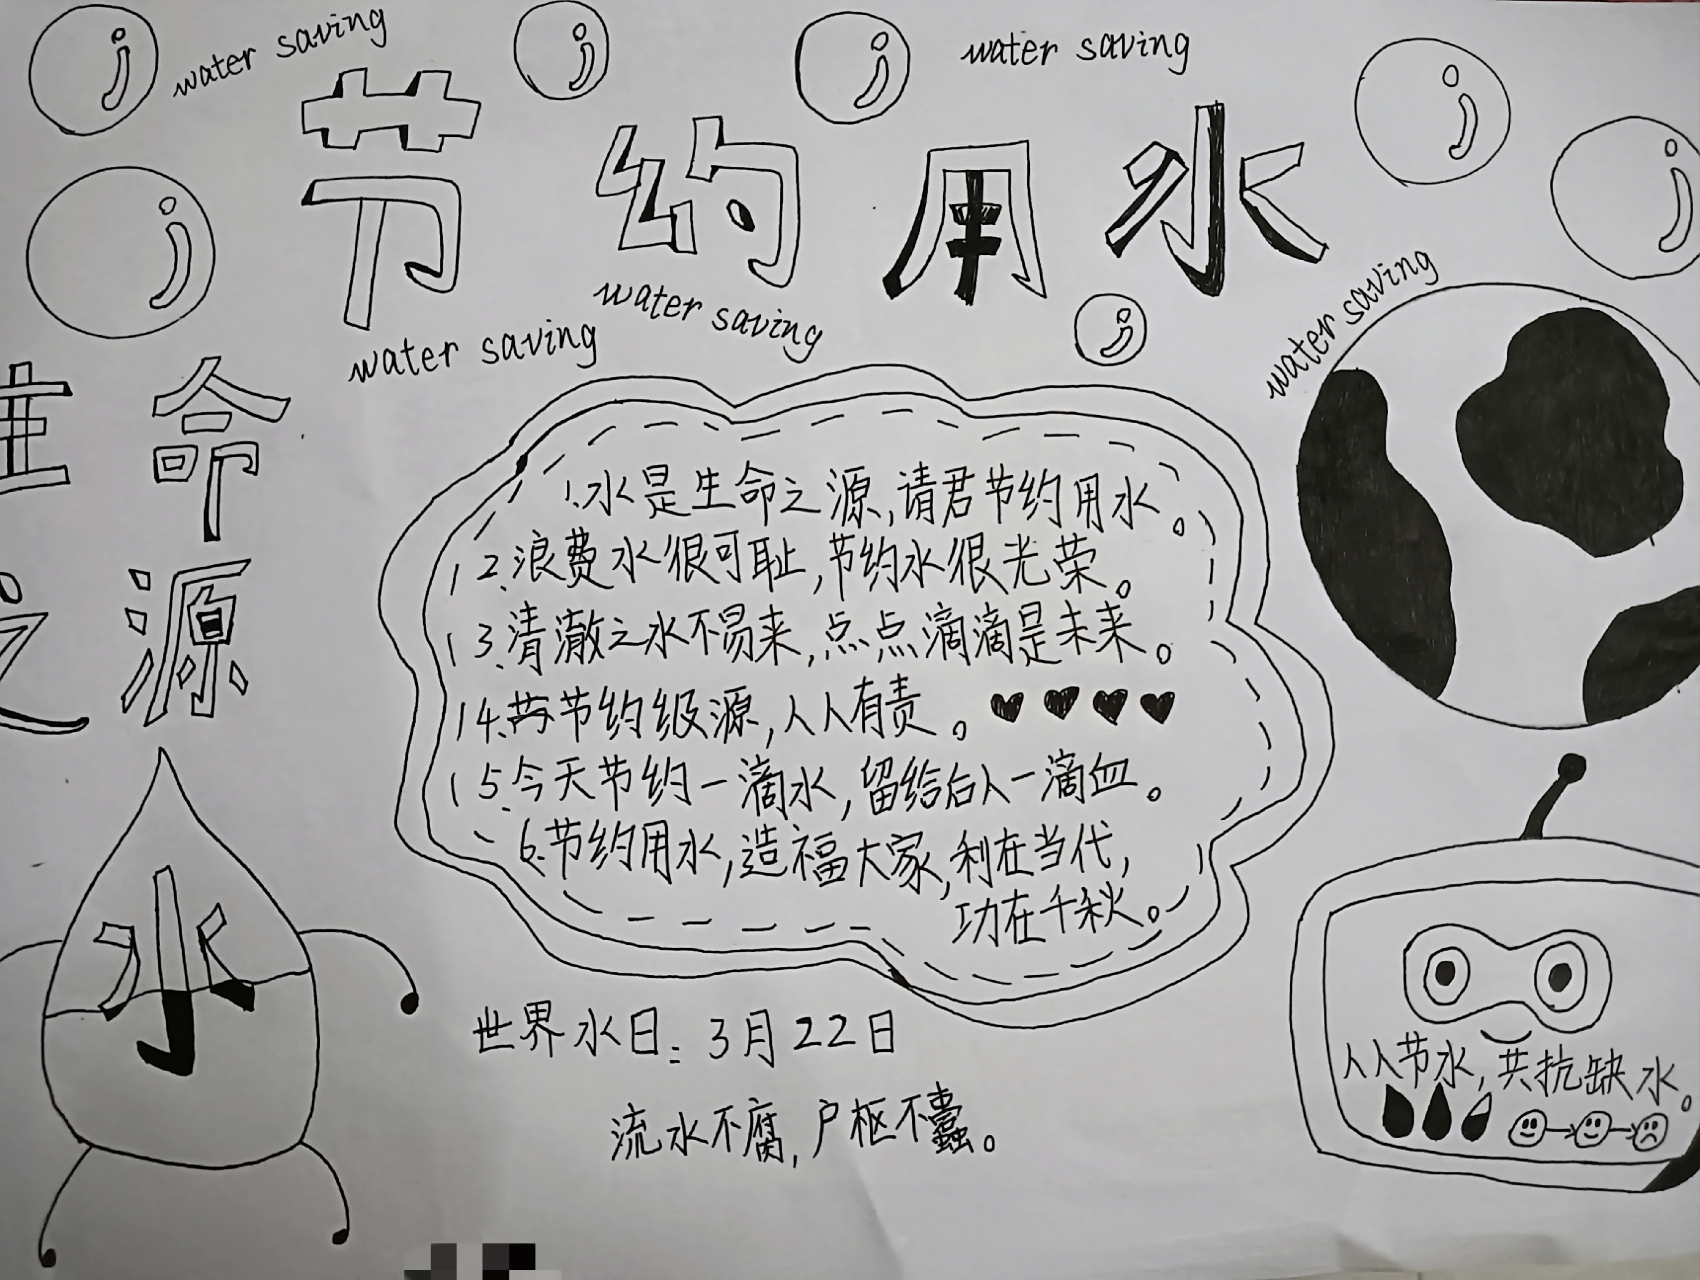 water saving
water saving
节约用水
water saving
water saving
water saving
生命
之源
1.水是生命之源,请君节约用水。
2.浪费水很可耻,节约水很光荣。
3.清澈之水不易来,点点滴滴是未来。
4.节约级源,人人有责。
5.今天节约一滴水,留给后人一滴血。
6.节约用水,造福大家,利在当代,
功在千秋。
水
世界水日:3月22日
流水不腐,户枢不蠹。
人人节水,共抗缺水。